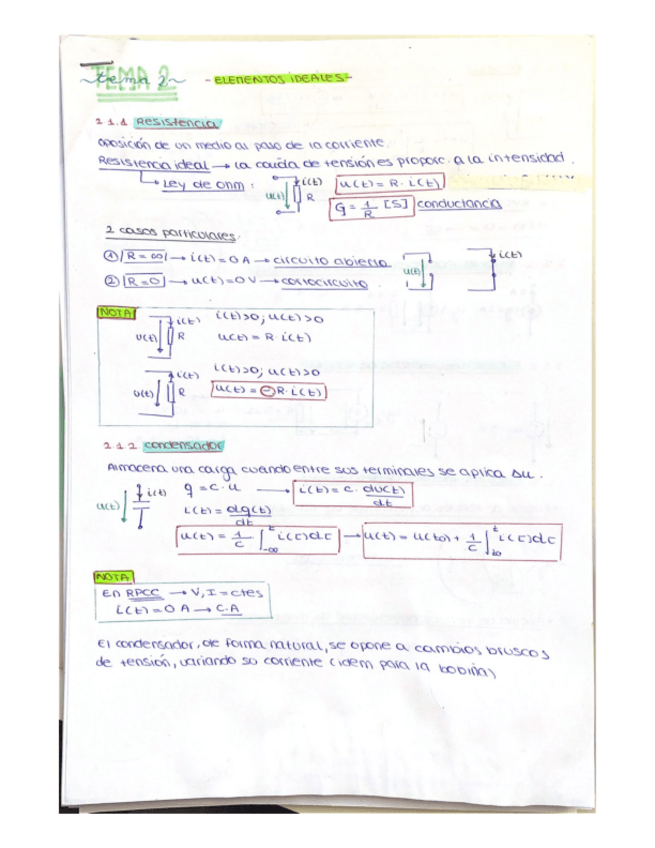 TEMA 2
~tema 2~ - ELEMENTOS IDEALES -
2.1.1 Resistencia
oposición de un medio al paso de la corriente.
Resistencia ideal → la caída de tensión es proporc. a la intensidad.
Ley de ohm: u(t) i(t) R u(t) = R · i(t)
G = 1/R [S] conductancia
2 casos particulares.
① R = ∞ → i(t) = 0 A → circuito abierto u(t) i(t)
② R = 0 → u(t) = 0 V → cortocircuito
NOTA
u(t) i(t) R i(t)>0; u(t)>0
u(t) = R · i(t)
u(t) i(t) R i(t)>0; u(t)>0
u(t) = ⊖R · i(t)
2.1.2 condensador
Almacena una carga cuando entre sus terminales se aplica Δu.
u(t) i(t) q = c · u → i(t) = c · du(t)/dt
i(t) = dq(t)/dt
u(t) = 1/c ∫_{-∞}^{t} i(τ)dτ → u(t) = u(t0) + 1/c ∫_{t0}^{t} i(τ)dτ
NOTA
En RPCC → V, I = ctes
i(t) = 0 A → C.A
El condensador, de forma natural, se opone a cambios bruscos
de tensión, variando su corriente (idem para la bobina)